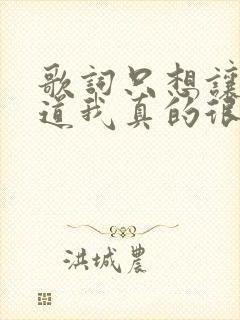 歌詞只想讓
道我真的很
洪城農